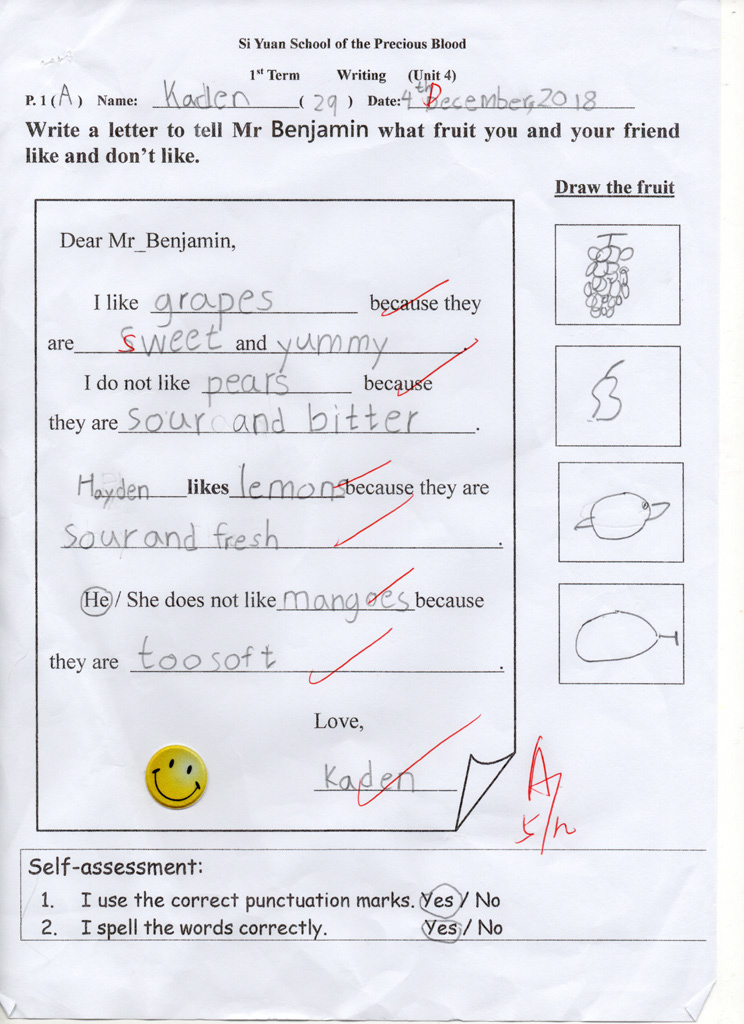 Si Yuan School of the Precious Blood
1st Term Writing (Unit 4)
P. 1 (A) Name: Kaden (29) Date: 4th December, 2018
Write a letter to tell Mr Benjamin what fruit you and your friend
like and don't like.
Draw the fruit
Dear Mr_Benjamin,
I like grapes because they
are sweet and yummy.
I do not like pears because
they are sour and bitter.
Hayden likes lemons because they are
sour and fresh.
He / She does not like mangoes because
they are too soft.
Love,
Kaden
A
5/12
Self-assessment:
1. I use the correct punctuation marks. Yes / No
2. I spell the words correctly. Yes / No